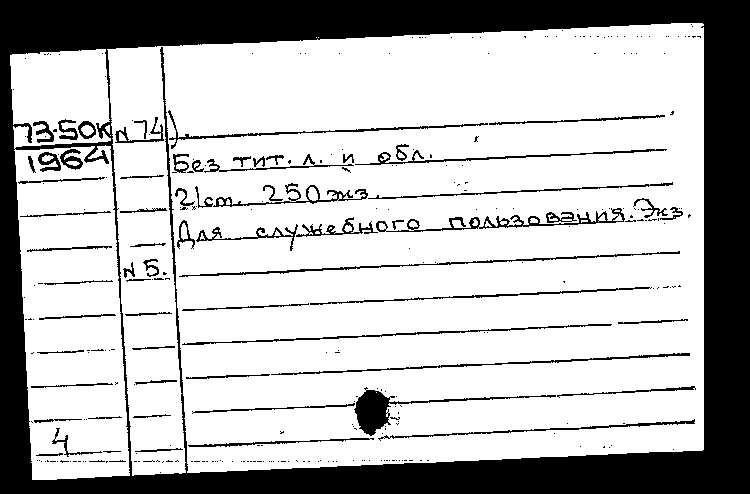 73-50к N 74).
1964 Без тит. л. и обл.
21 см. 250 экз.
Для служебного пользования. Экз.
N 5.
4